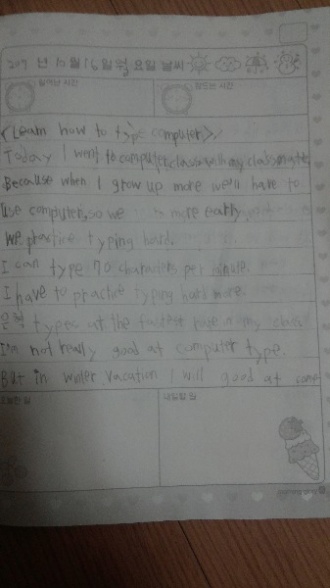 년 12 월 16 일 요일 날씨
일어난 시각 잠드는 시각
<Learn how to type computer>
Today I went to computer class with my classmates
Because when I grow up more we'll have to
use computer, so we more early
We practice typing hard.
I can type 70 characters per minute.
I have to practice typing hard more.
types at the fastest in my class
I'm not really good at computer type.
But in winter vacation I will good at some
오늘한 일 내일할 일